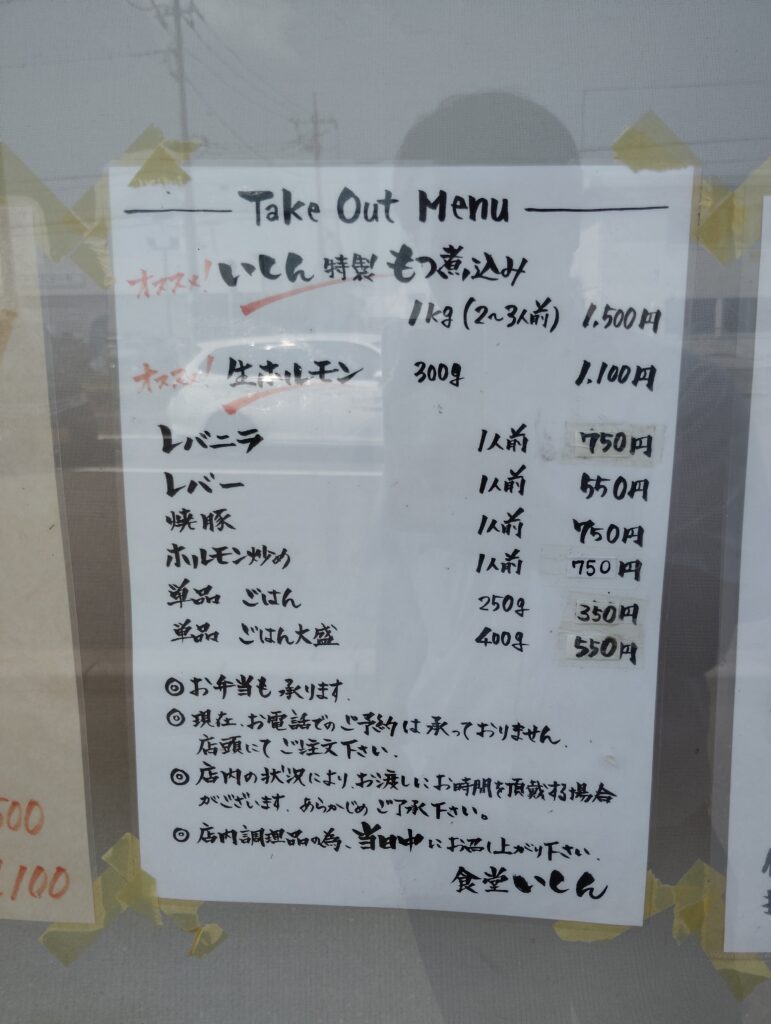 Take Out Menu
オススメ! いしん 特製 もつ煮込み
1kg (2〜3人前) 1,500円
オススメ! 生ホルモン 300g 1,100円
レバニラ 1人前 750円
レバー 1人前 550円
焼豚 1人前 750円
ホルモン炒め 1人前 750円
単品 ごはん 250g 350円
単品 ごはん大盛 400g 550円
◎お弁当も承ります.
◎現在、お電話でのご予約は承っておりません.
店頭にてご注文下さい.
◎店内の状況によりお渡しにお時間を頂戴する場合
がございます. あらかじめご了承下さい。
◎店内調理品の為、当日中にお召し上がり下さい.
食堂いしん
500
1,100